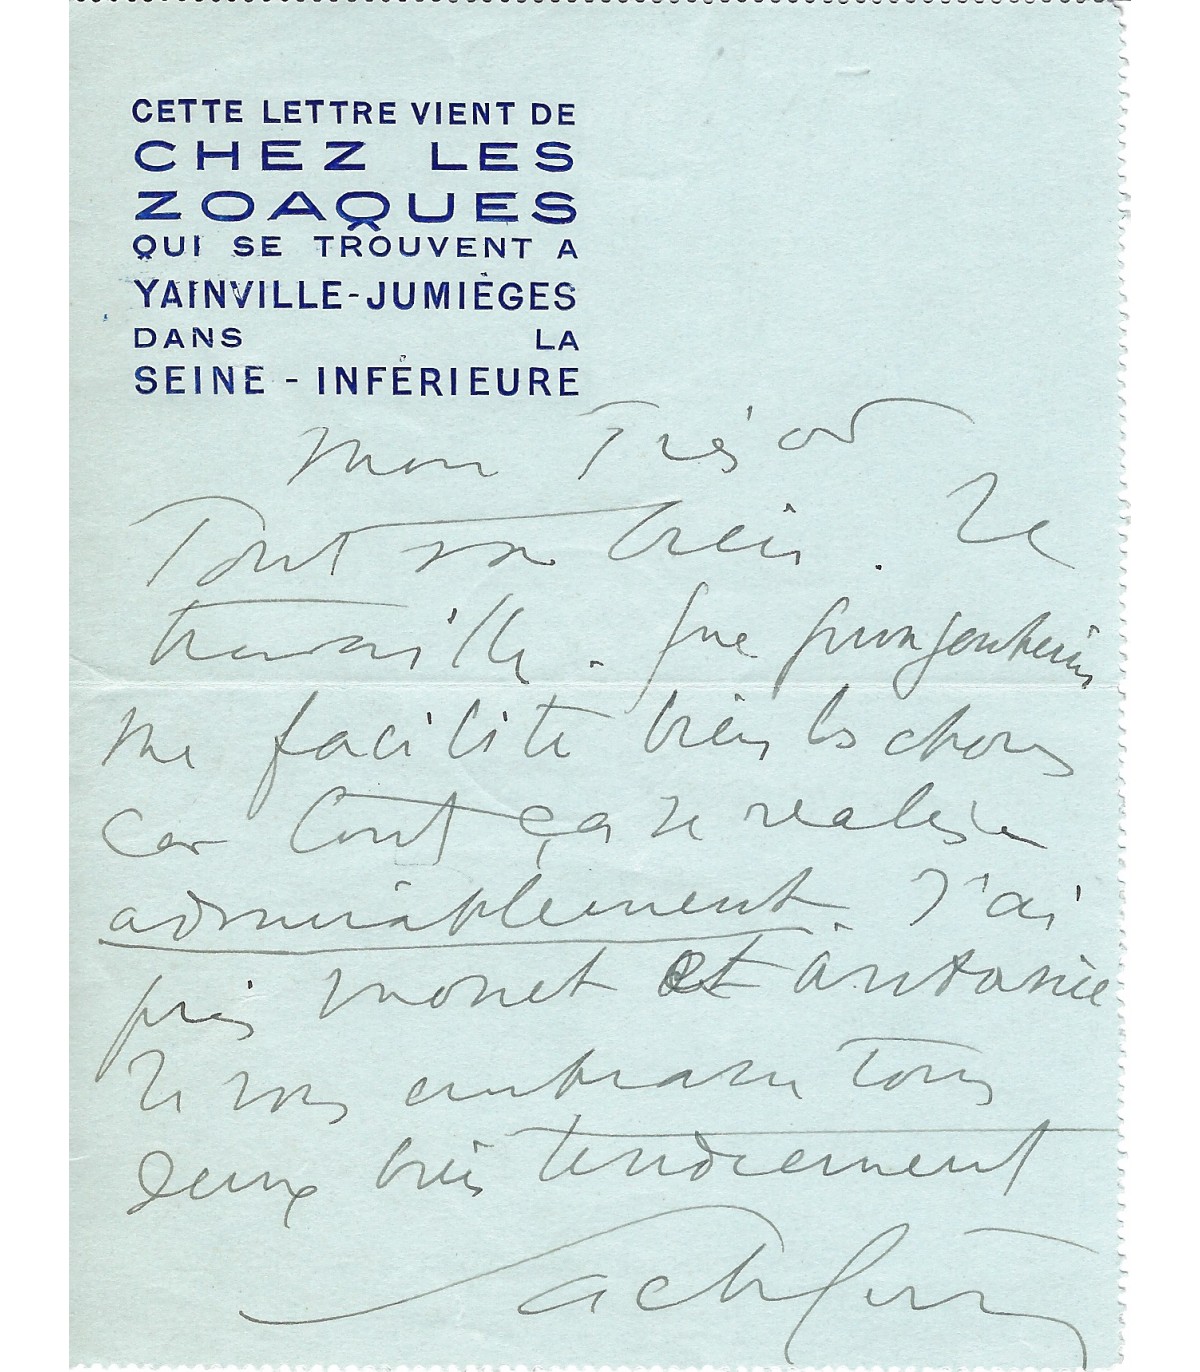 CETTE LETTRE VIENT DE
CHEZ LES
ZOAQUES
QUI SE TROUVENT A
YAINVILLE-JUMIÈGES
DANS LA
SEINE - INFÉRIEURE
Mon Trésor
Tout va bien. Je
travaille. Que
me facilite bien les choses
car tout ça se réalise
admirablement. J'ai
pris Monet et Antoine
Je vous embrasse tous
deux bien tendrement
Sacha Guitry